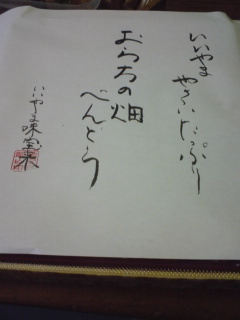 いいやま やさいたっぷり
おらちの畑
べんとう
いいやま味宝来